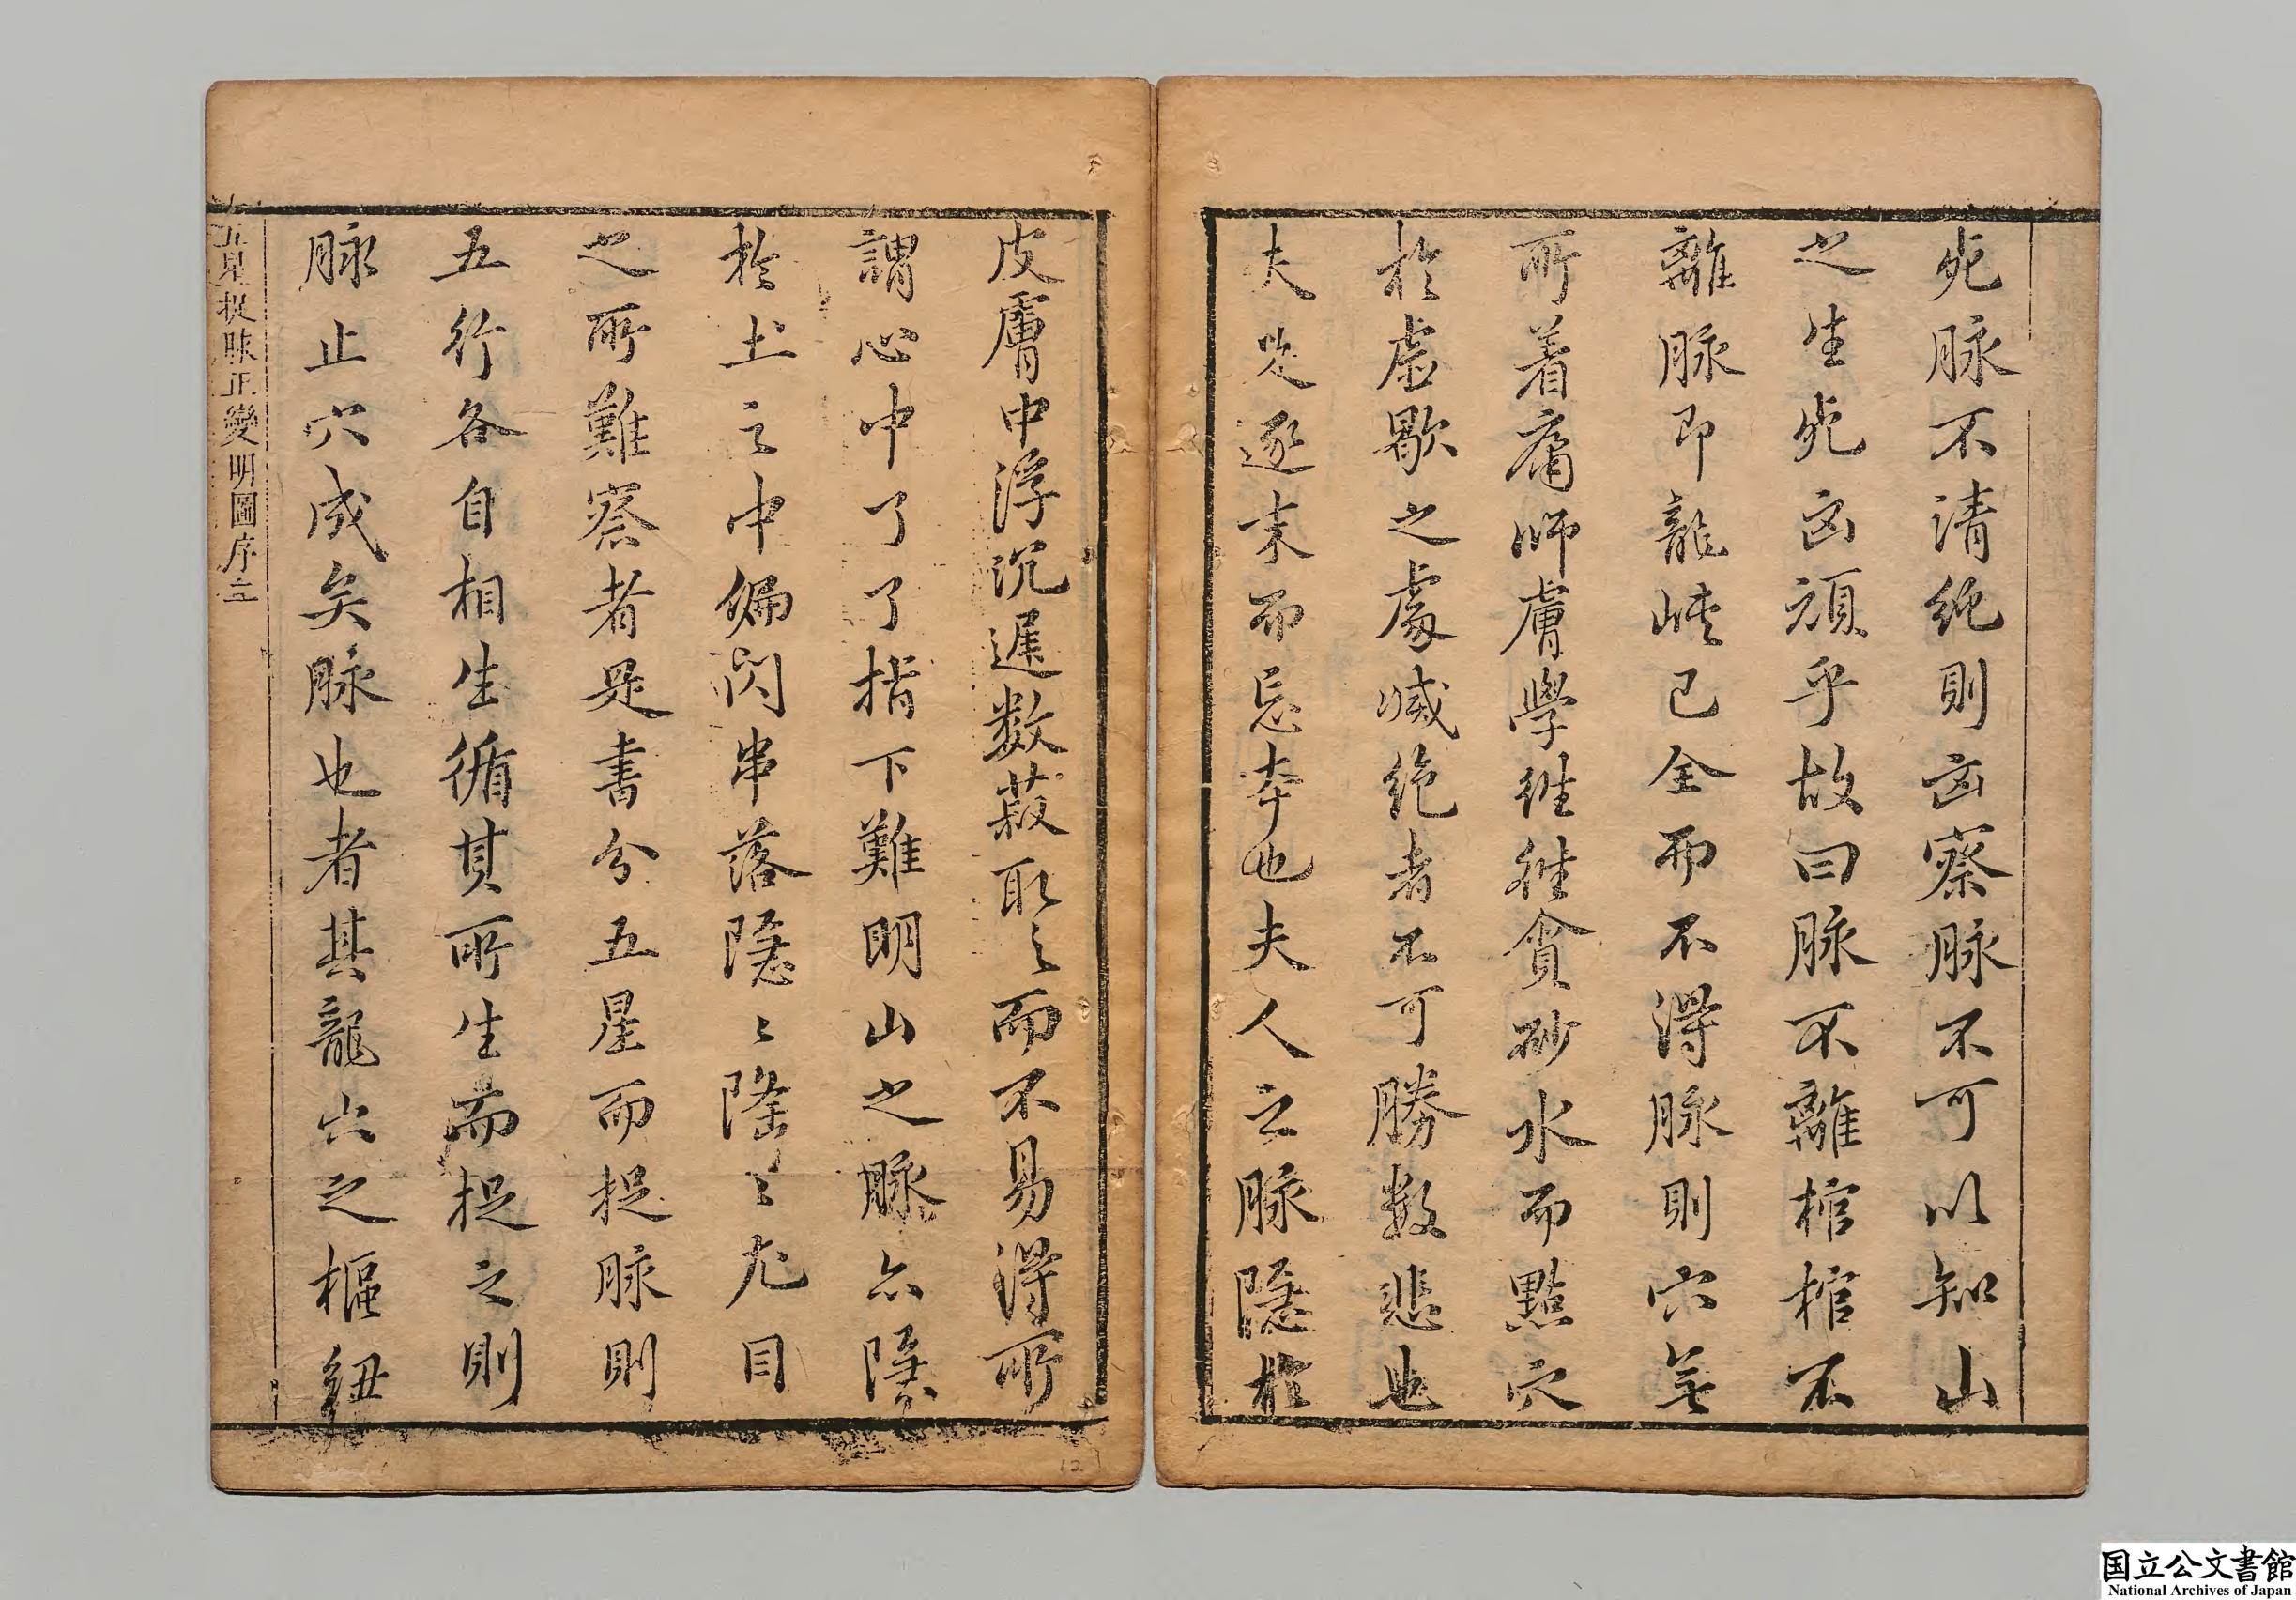 死脉不清純則凶察脉不可以知山
之生死凶頑乎故曰脉不離棺棺不
離脉即龍峽已全而不得脉則穴無
所着庸師膚學往往貪砂水而點穴
於虛歇之處滅絶者不可勝數悲也
夫是逐末而忘本也夫人之脉隱於
皮膚中浮沉遲數菽取之而不易得所
謂心中了了指下難明山之脉亦隱
於土之中偏閃串落隱隱隆隆尤目
之所難察者是書分五星而捉脉則
五行各自相生循其所生而捉之則
脉止穴成矣脉也者其龍穴之樞紐
五星捉脉正變明圖序 三
国立公文書館
National Archives of Japan
12